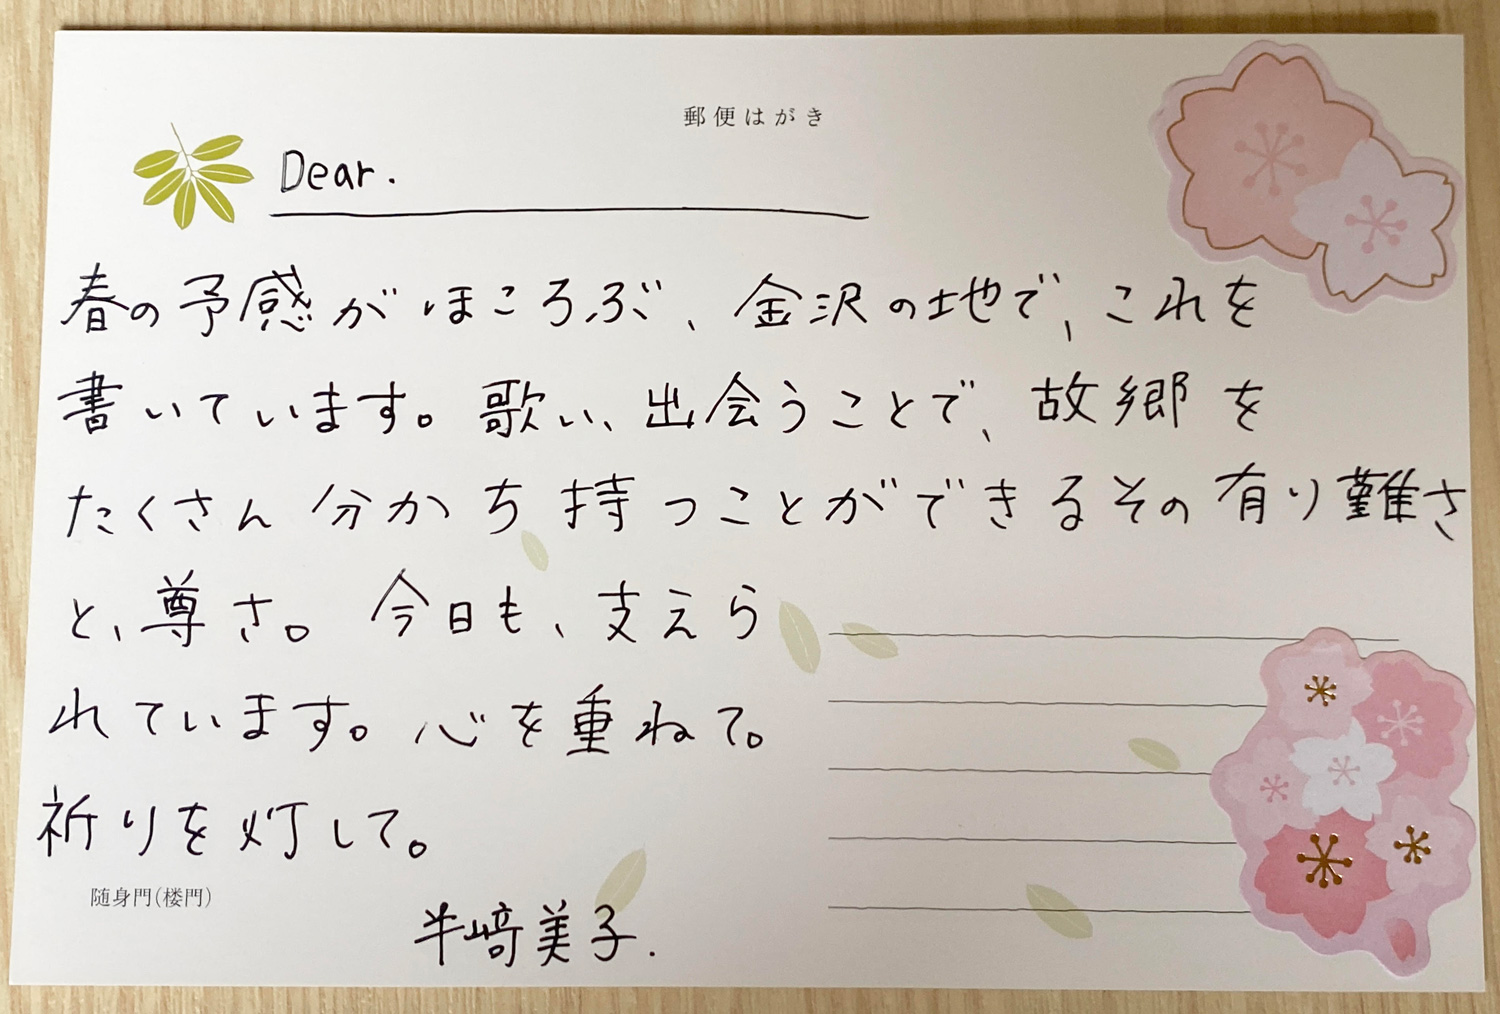 郵便はがき
Dear.
春の予感がほころぶ、金沢の地で、これを
書いています。歌い、出会うことで、故郷を
たくさん分かち持つことができるその有り難さ
と、尊さ。今日も、支えら
れています。心を重ねて。
祈りを灯して。
随身門(楼門)
半﨑美子.